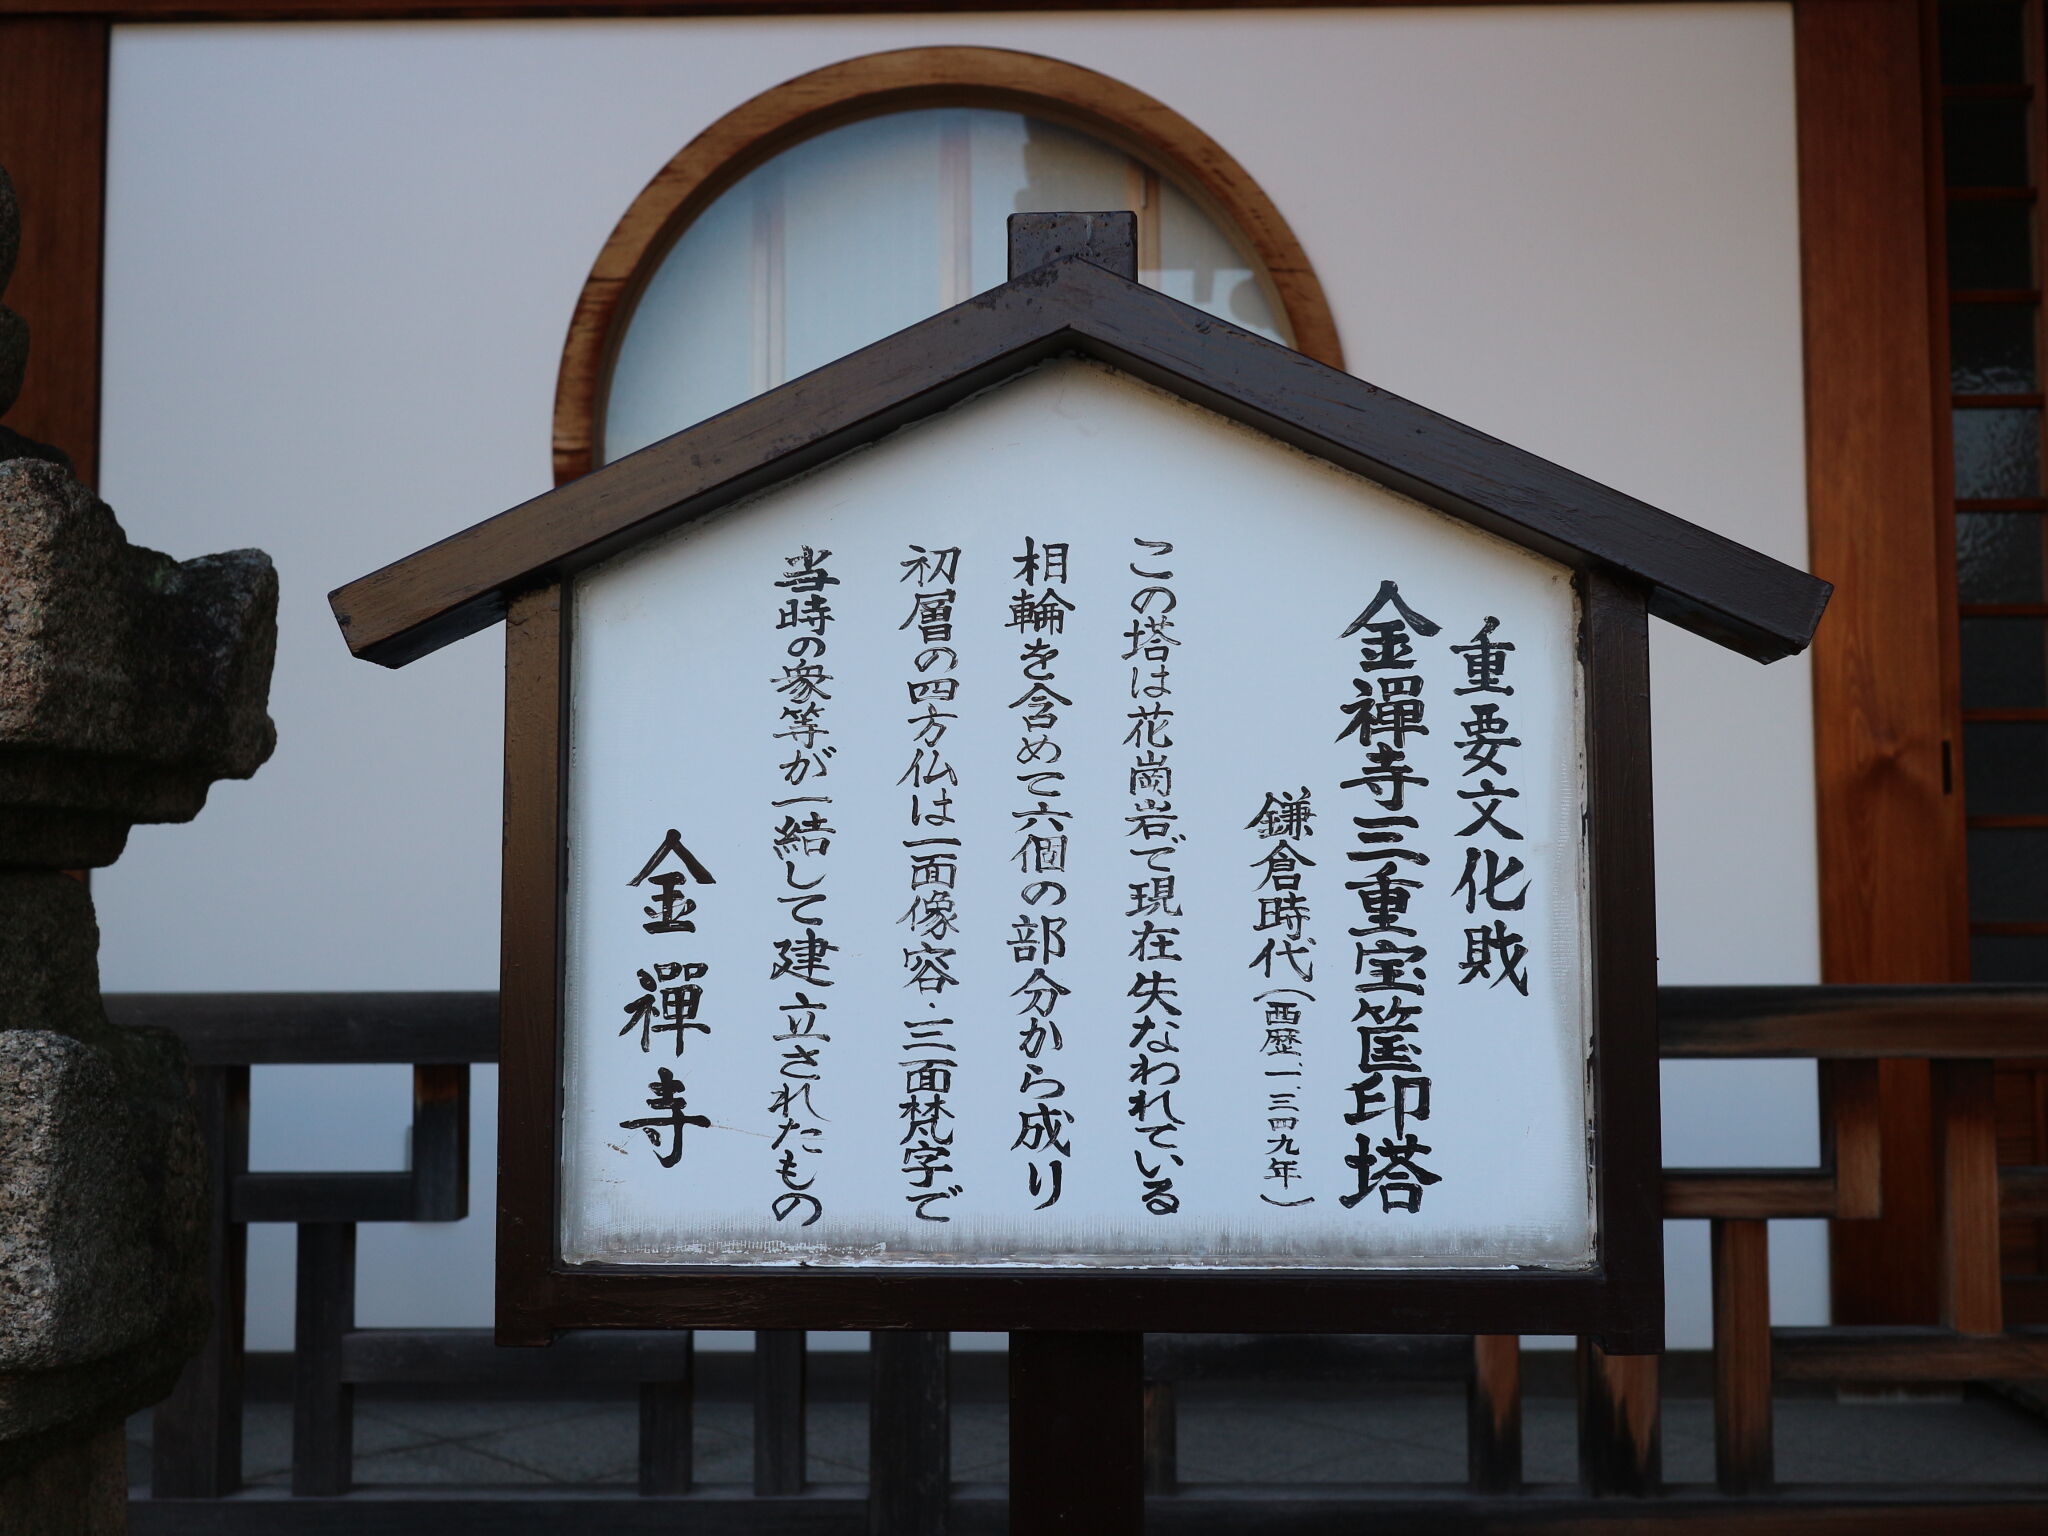 重要文化財
金禪寺三重宝篋印塔
鎌倉時代(西暦一、三四九年)
この塔は花崗岩で現在失なわれている
相輪を含めて六個の部分から成り
初層の四方仏は一面像容・三面梵字で
当時の衆等が一結して建立されたもの
金禪寺